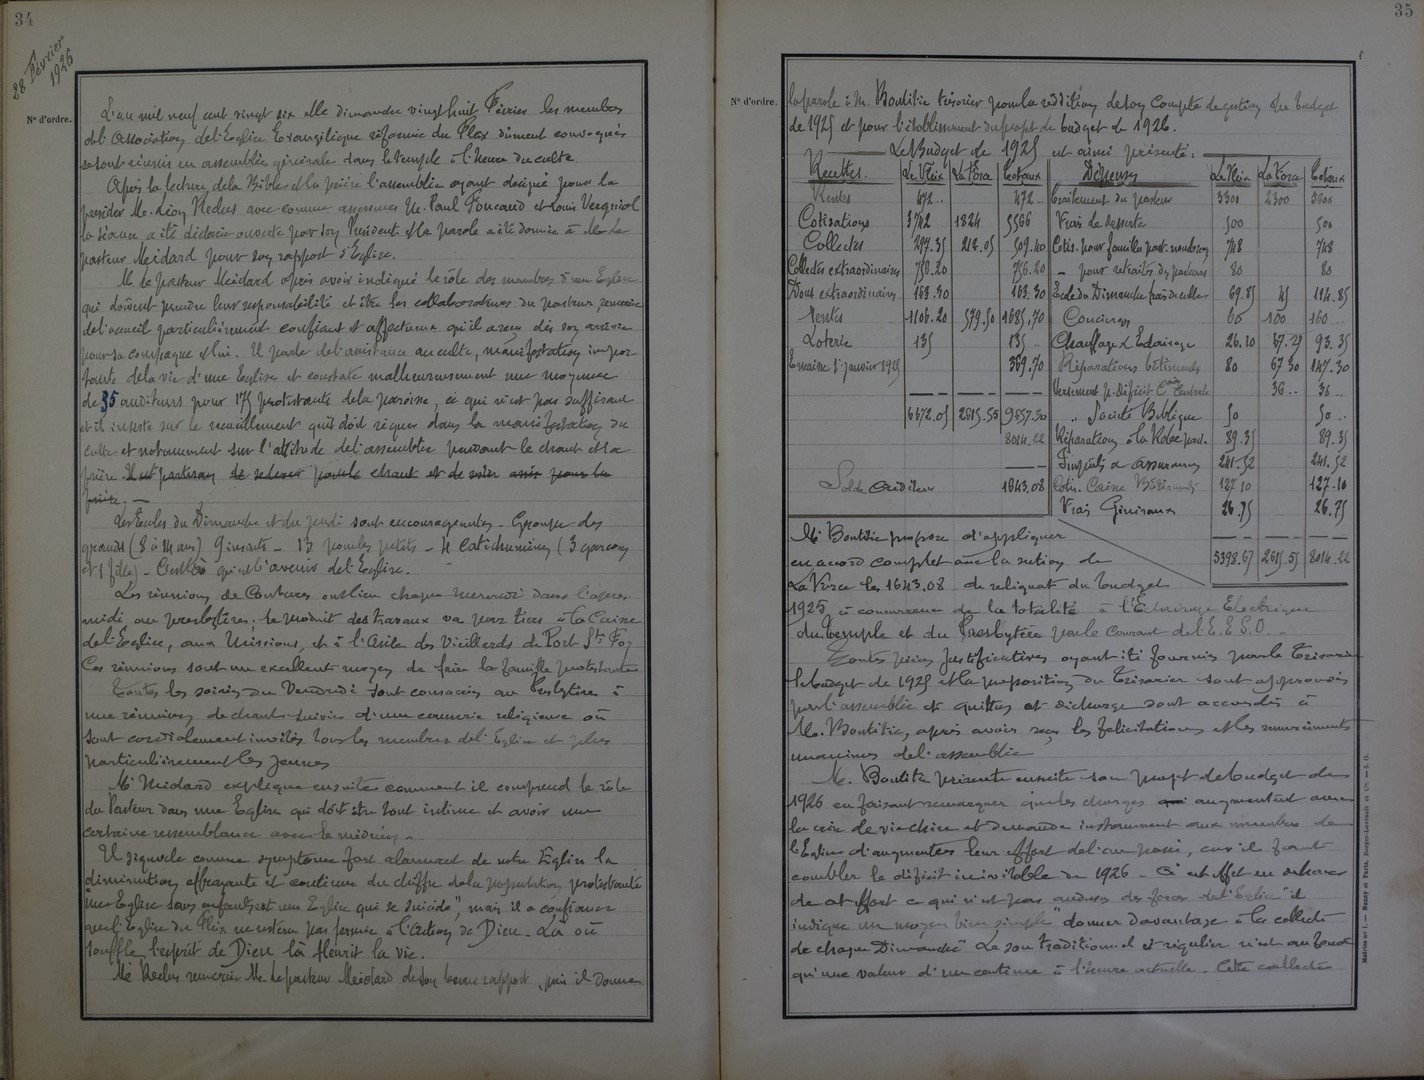 34
28 Février
1926
N° d'ordre.
L'an mil neuf cent vingt six et le dimanche vingt huit Février les membres
de l'Association de l'Eglise Evangélique réformée du Fleix dûment convoqués
se sont réunis en assemblée générale dans le temple à l'heure du culte.
Après la lecture de la Bible et la prière l'assemblée ayant désigné pour la
présider M. Léon Reclus avec comme assesseurs M. Paul Foucaud et Louis Vergniol
la séance a été déclarée ouverte par son Président et la parole a été donnée à M. le
pasteur Meidard pour son rapport d'Eglise.
M. le pasteur Meidard après avoir indiqué le rôle des membres d'une Eglise
qui doivent prendre leur responsabilité et être les collaborateurs du pasteur, remercie
de l'accueil particulièrement confiant et affectueux qu'il a reçu dès son arrivée
pour sa compagne et lui. Il parle de l'assistance au culte, manifestation impor
tante de la vie d'une Eglise et constate malheureusement une moyenne
de 35 auditeurs pour 175 protestants de la paroisse, ce qui n'est pas suffisant
et il insiste sur le recueillement qui doit régner dans la manifestation du
culte et notamment sur l'attitude de l'assemblée pendant le chant et la
prière. Il est partisan de se lever pour le chant et de rester assis pour la
prière. —
Les Ecoles du Dimanche et du jeudi sont encourageantes - Groupe des
grands (8 à 14 ans) 9 enfants - 13 pour les petits - 4 Catéchumènes (3 garçons
et 1 fille) - C'est là qu'est l'avenir de l'Eglise.
Les réunions de Couture ont lieu chaque mercredi dans l'après
midi, au presbytère; le produit des travaux va par tiers à la Caisse
de l'Eglise, aux Missions, et à l'Asile des Vieillards de Port Ste Foy
Ces réunions sont un excellent moyen de faire la famille protestante
Toutes les soirées du Vendredi sont consacrées au Presbytère à
une réunion de chants suivie d'une causerie religieuse où
sont cordialement invités tous les membres de l'Eglise et plus
particulièrement les jeunes
M. Meidard explique ensuite comment il comprend le rôle
du Pasteur dans une Eglise qui doit être tout intime et avoir une
certaine ressemblance avec le médecin.
Il signale comme symptôme fort alarmant de notre Eglise la
diminution effrayante et continue du chiffre de la population protestante
"une Eglise sans enfants est une Eglise qui se suicide", mais il a confiance
que l'Eglise du Fleix ne restera pas fermée à l'action de Dieu - Là où
souffle l'esprit de Dieu là fleurit la vie.
M. Reclus remercie M. le pasteur Meidard de son bon rapport, puis il donne
35
N° d'ordre.
la parole à M. Boutitie trésorier pour la reddition de son Compte de gestion du budget
de 1925 et pour l'établissement du projet de budget de 1926.
Le Budget de 1925 est ainsi présenté:
Recettes. Le Fleix La Force Totaux Dépenses Le Fleix La Force Totaux
Rentes 472 .. 472 .. Traitement du pasteur 3300 2300
Cotisations 3742 1824 5566 Frais de desserte 500 500
Collectes 297.35 212.05 509.40 Cotis. pour familles past. nombreuses 748 748
Collectes extraordinaires 756.20 756.20 — pour retraites des pasteurs 80 80
Dons extraordinaires 163.30 163.30 Ecole du Dimanche frais de culte 69.85 45 114.85
Ventes 1106.20 579.50 1685.70 Concierges 60 100 160
Loterie 135 135 .. Chauffage & Eclairage 26.10 67.25 93.35
En caisse 1er janvier 1925 369.70 Réparations bâtiments 80 67 30 147.30
Versement p. déficit Con Centrale 36 .. 36 ..
6672.05 2615.55 9657.30 " Société Biblique 50 50 ..
8014.22 Réparations à la Robe past. 89.35 89.35
Impôts & assurances 241.52 241.52
Solde Créditeur 1643.08 Cotis. Caisse 127.10 127.10
Frais Généraux 26.75 26.75
5398.67 2615.55 8014.22
M. Boutitie propose d'appliquer
en accord complet avec la section de
La Force les 1643.08 de reliquat du budget
1925 à concurrence de la totalité à l'Eclairage Electrique
du Temple et du Presbytère par le Courant de l'E.E.S.O.
Toutes pièces justificatives ayant été fournies par le Trésorier
le budget de 1925 et la proposition du Trésorier sont approuvés
par l'assemblée et quittus et décharge sont accordés à
M. Boutitie, après avoir reçu les félicitations et les remerciements
unanimes de l'assemblée
M. Boutitie présente ensuite son projet de budget de
1926 en faisant remarquer que les charges augmentent avec
la crise de vie chère et demande instamment aux membres de
l'Eglise d'augmenter leur effort de l'an passé, car il faut
combler le déficit inévitable de 1926 - Et en dehors
de cet effort ce qui n'est pas au dessus des forces de l'Eglise "il
indique un moyen bien simple" donner davantage à la collecte
de chaque Dimanche" Le sou traditionnel et régulier n'est au fond
qu'une valeur d'un centime à l'heure actuelle. Cette collecte
Modèle n° 1. — Nancy et Paris, Berger-Levrault et Cie. — S. O.